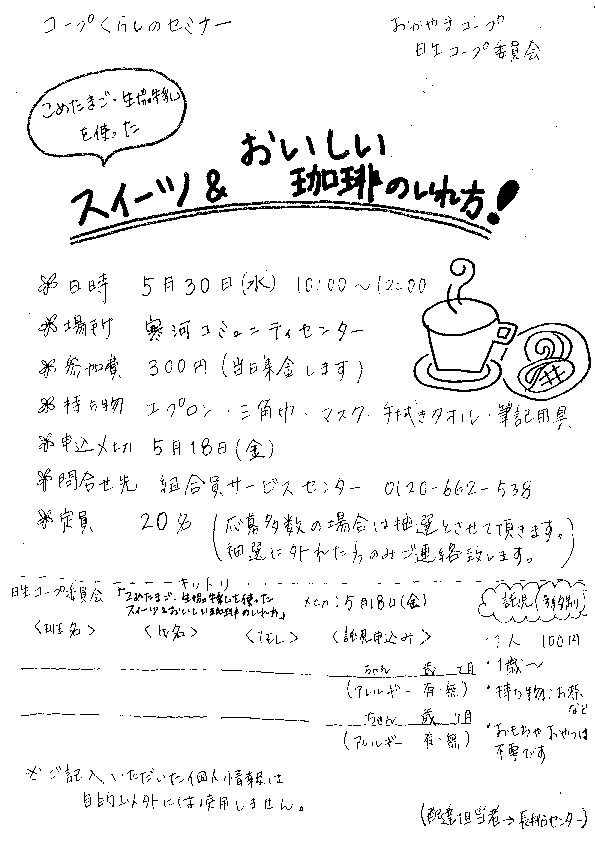 コープくらしのセミナー
おかやまコープ
日生コープ委員会
こめたまご・生協牛乳
を使った
おいしい
スイーツ&珈琲のいれ方!
日時 5月30日(水) 10:00～12:00
場所 寒河コミュニティセンター
参加費 300円(当日集金します)
持ち物 エプロン・三角巾・マスク・手拭きタオル・筆記用具
申込〆切 5月18日(金)
問合せ先 組合員サービスセンター 0120-662-538
定員 20名 (応募多数の場合は抽選とさせて頂きます。
抽選に外れた方のみご連絡致します。)
キリトリ
日生コープ委員会 「こめたまご・生協牛乳を使った
スイーツ&おいしい珈琲のいれ方」 〆切:5月18日(金)
託児(多多別)
<班名> <氏名> <TEL> <託児申込み>
・1人 100円
・1歳～
・持ち物:お茶
など
・おもちゃ おやつは
不要です
ちゃん 歳 ヶ月
(アレルギー 有・無)
ちゃん 歳 ヶ月
(アレルギー 有・無)
※ご記入いただいた個人情報は
目的以外には使用しません。
(配達担当者→長船センター)